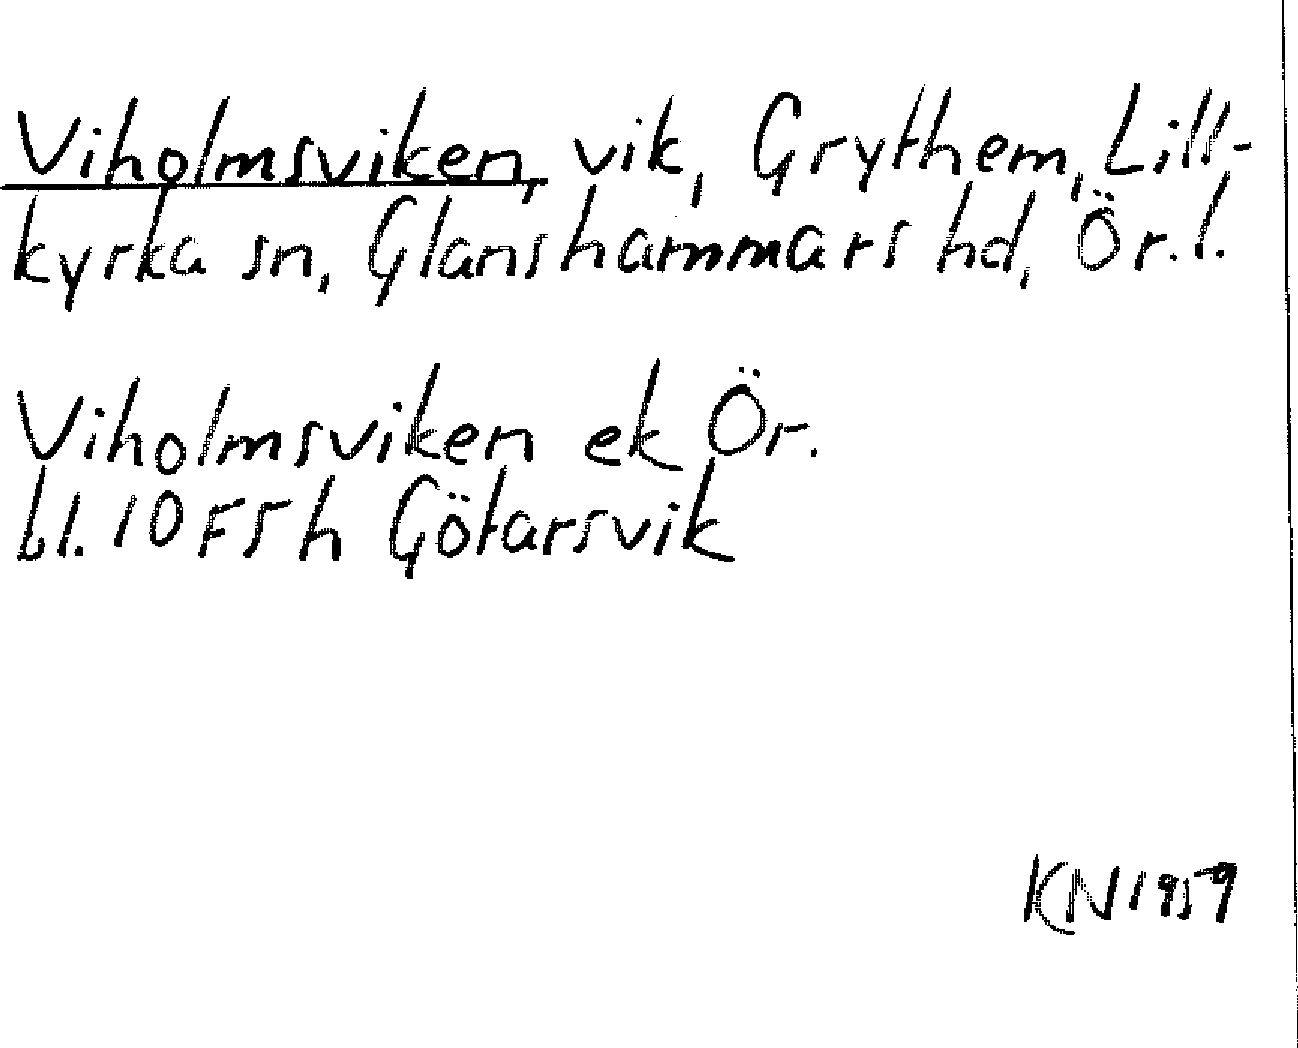 Viholmsviken, vik, Grythem, Lill-
kyrka sn, Glanshammars hd, Ör. l.
Viholmsviken ek Ör.
bl. 10F5h Götarsvik
KN 1959